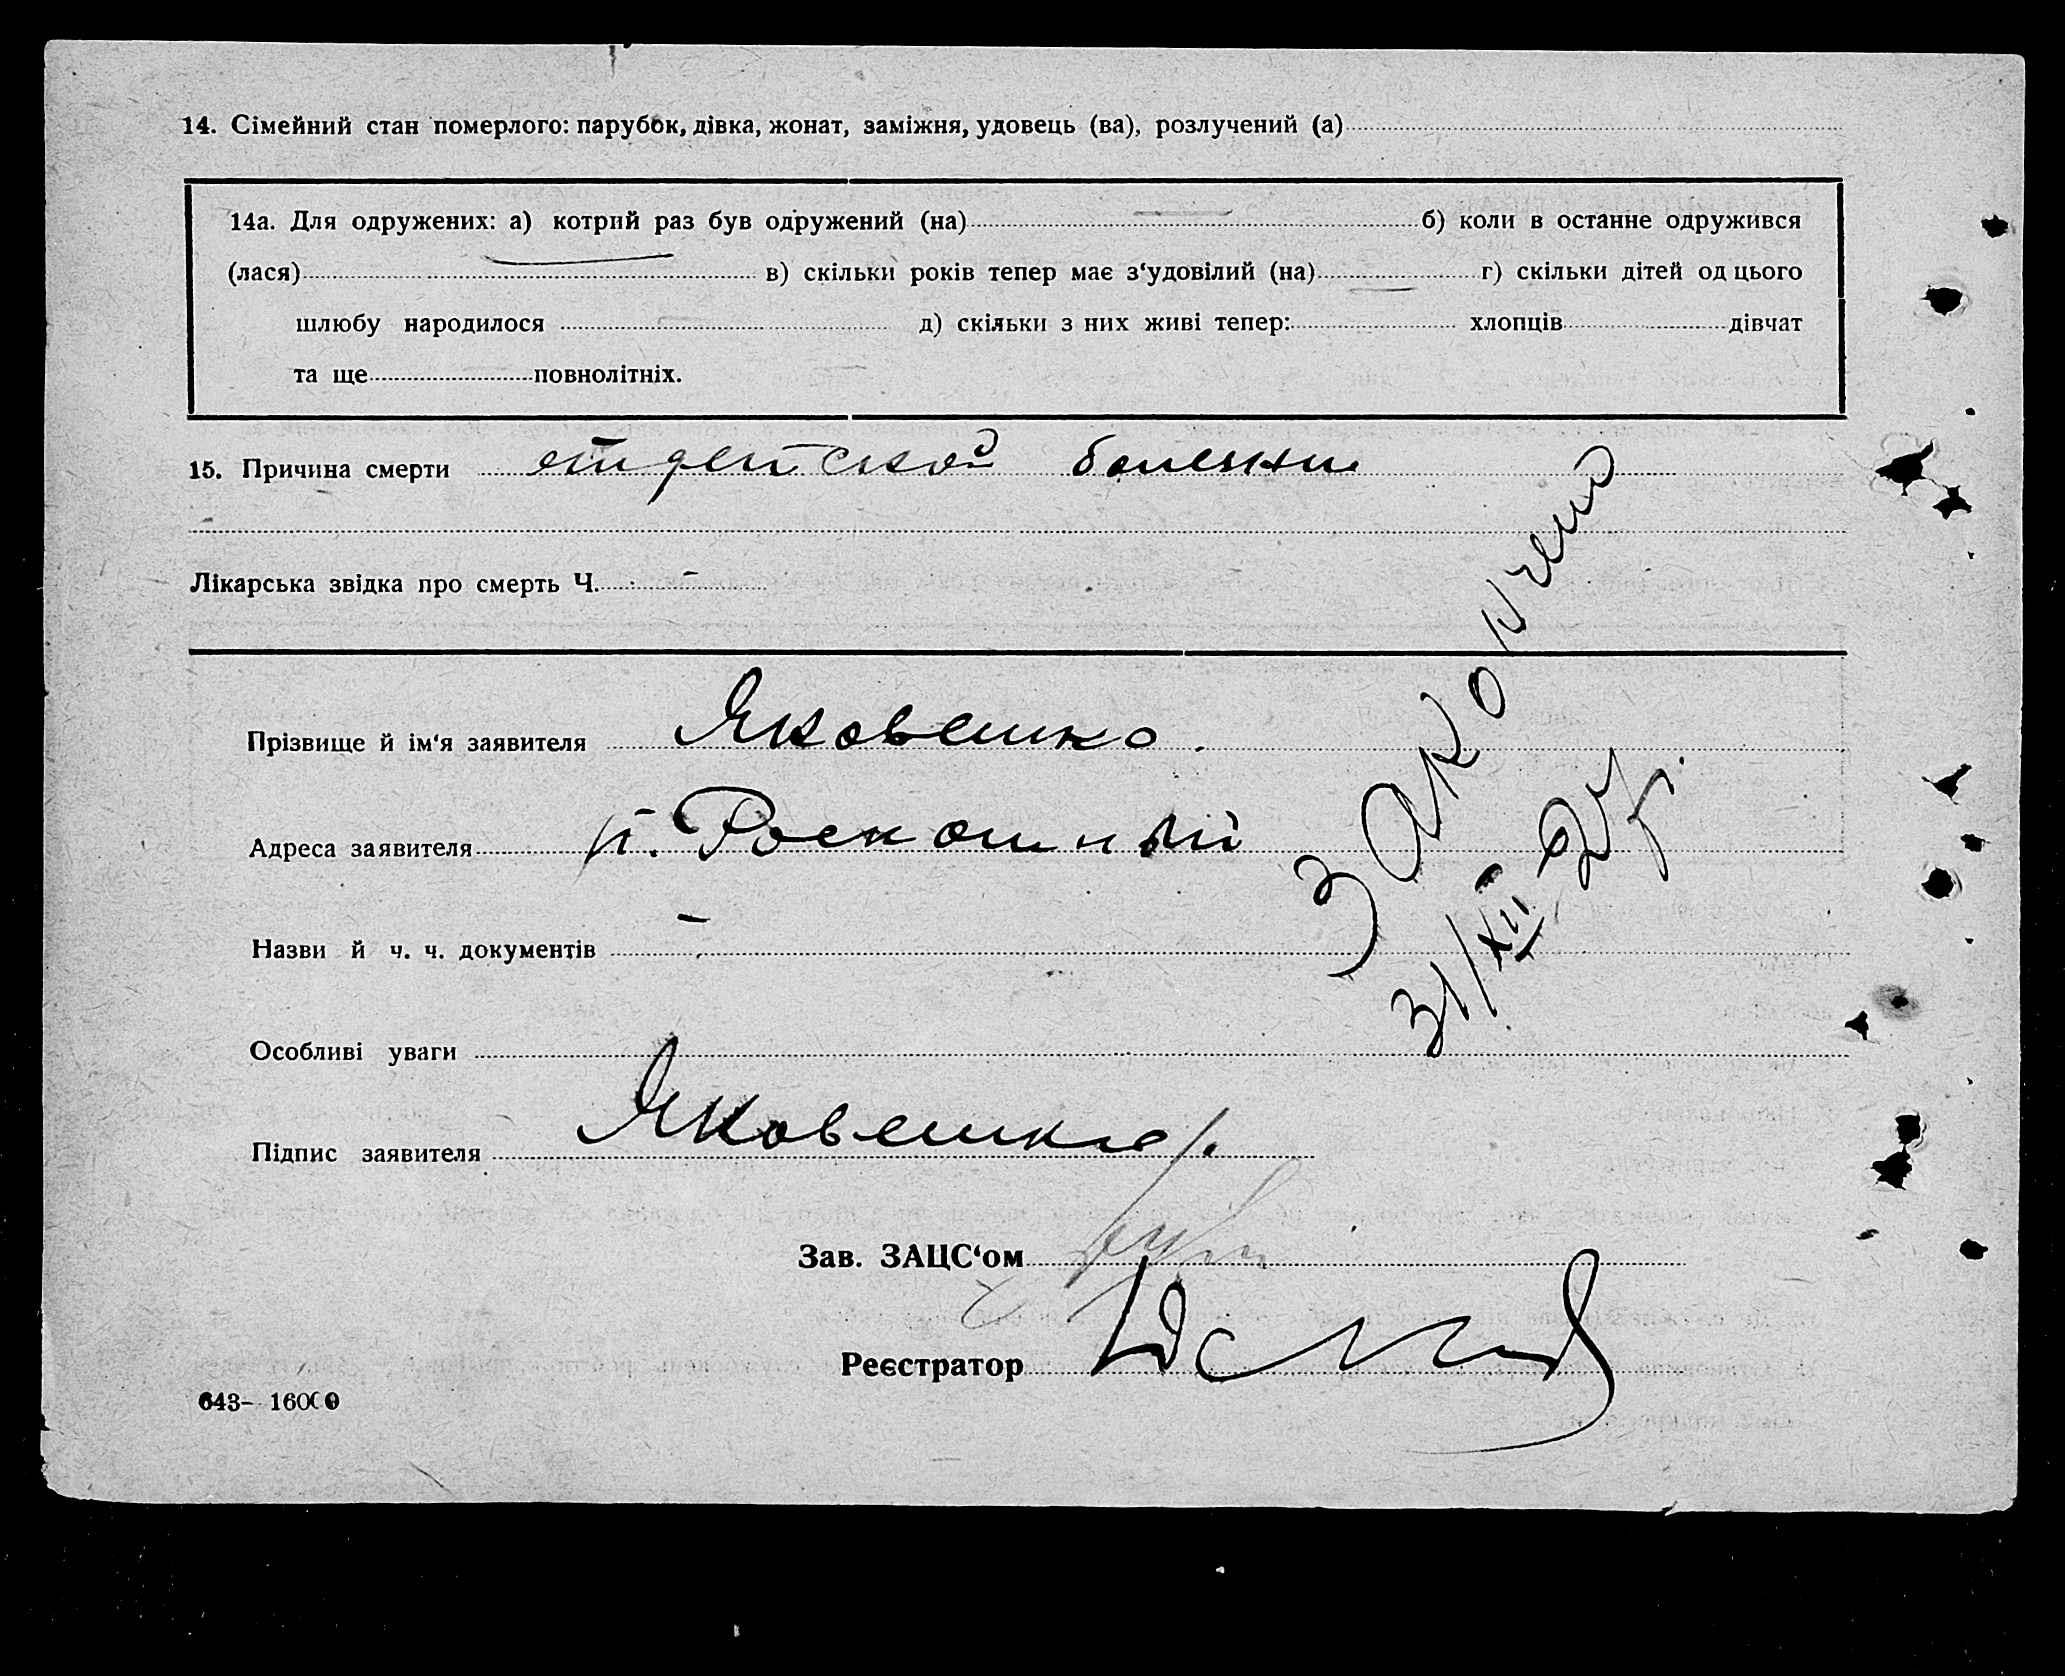 14. Сімейний стан померлого: парубок, дівка, жонат, заміжня, удовець (ва), розлучений (а)
14а. Для одружених: а) котрий раз був одружений (на) б) коли в останне одружився
(лася) в) скільки років тепер має з'удовілий (на) г) скільки дітей од цього
шлюбу народилося д) скільки з них живі тепер: хлопців дівчат
та ще повнолітніх.
15. Причина смерти от детской болезни
Лікарська звідка про смерть Ч. -
Прізвище й ім'я заявителя Яковенко.
Адреса заявителя п. Роскошный
Назви й ч. ч. документів -
Особливі уваги
Підпис заявителя Яковенко.
Закончено
31/XII 27 г.
Зав. ЗАЦС'ом
Реєстратор
643- 16000